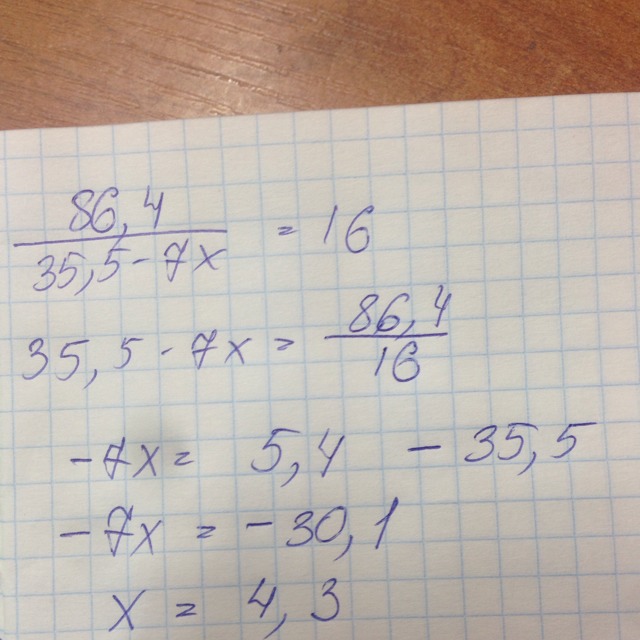 86,4 / 35,5 - 7x = 16
35,5 - 7x = 86,4 / 16
-7x = 5,4 - 35,5
-7x = -30,1
x = 4,3